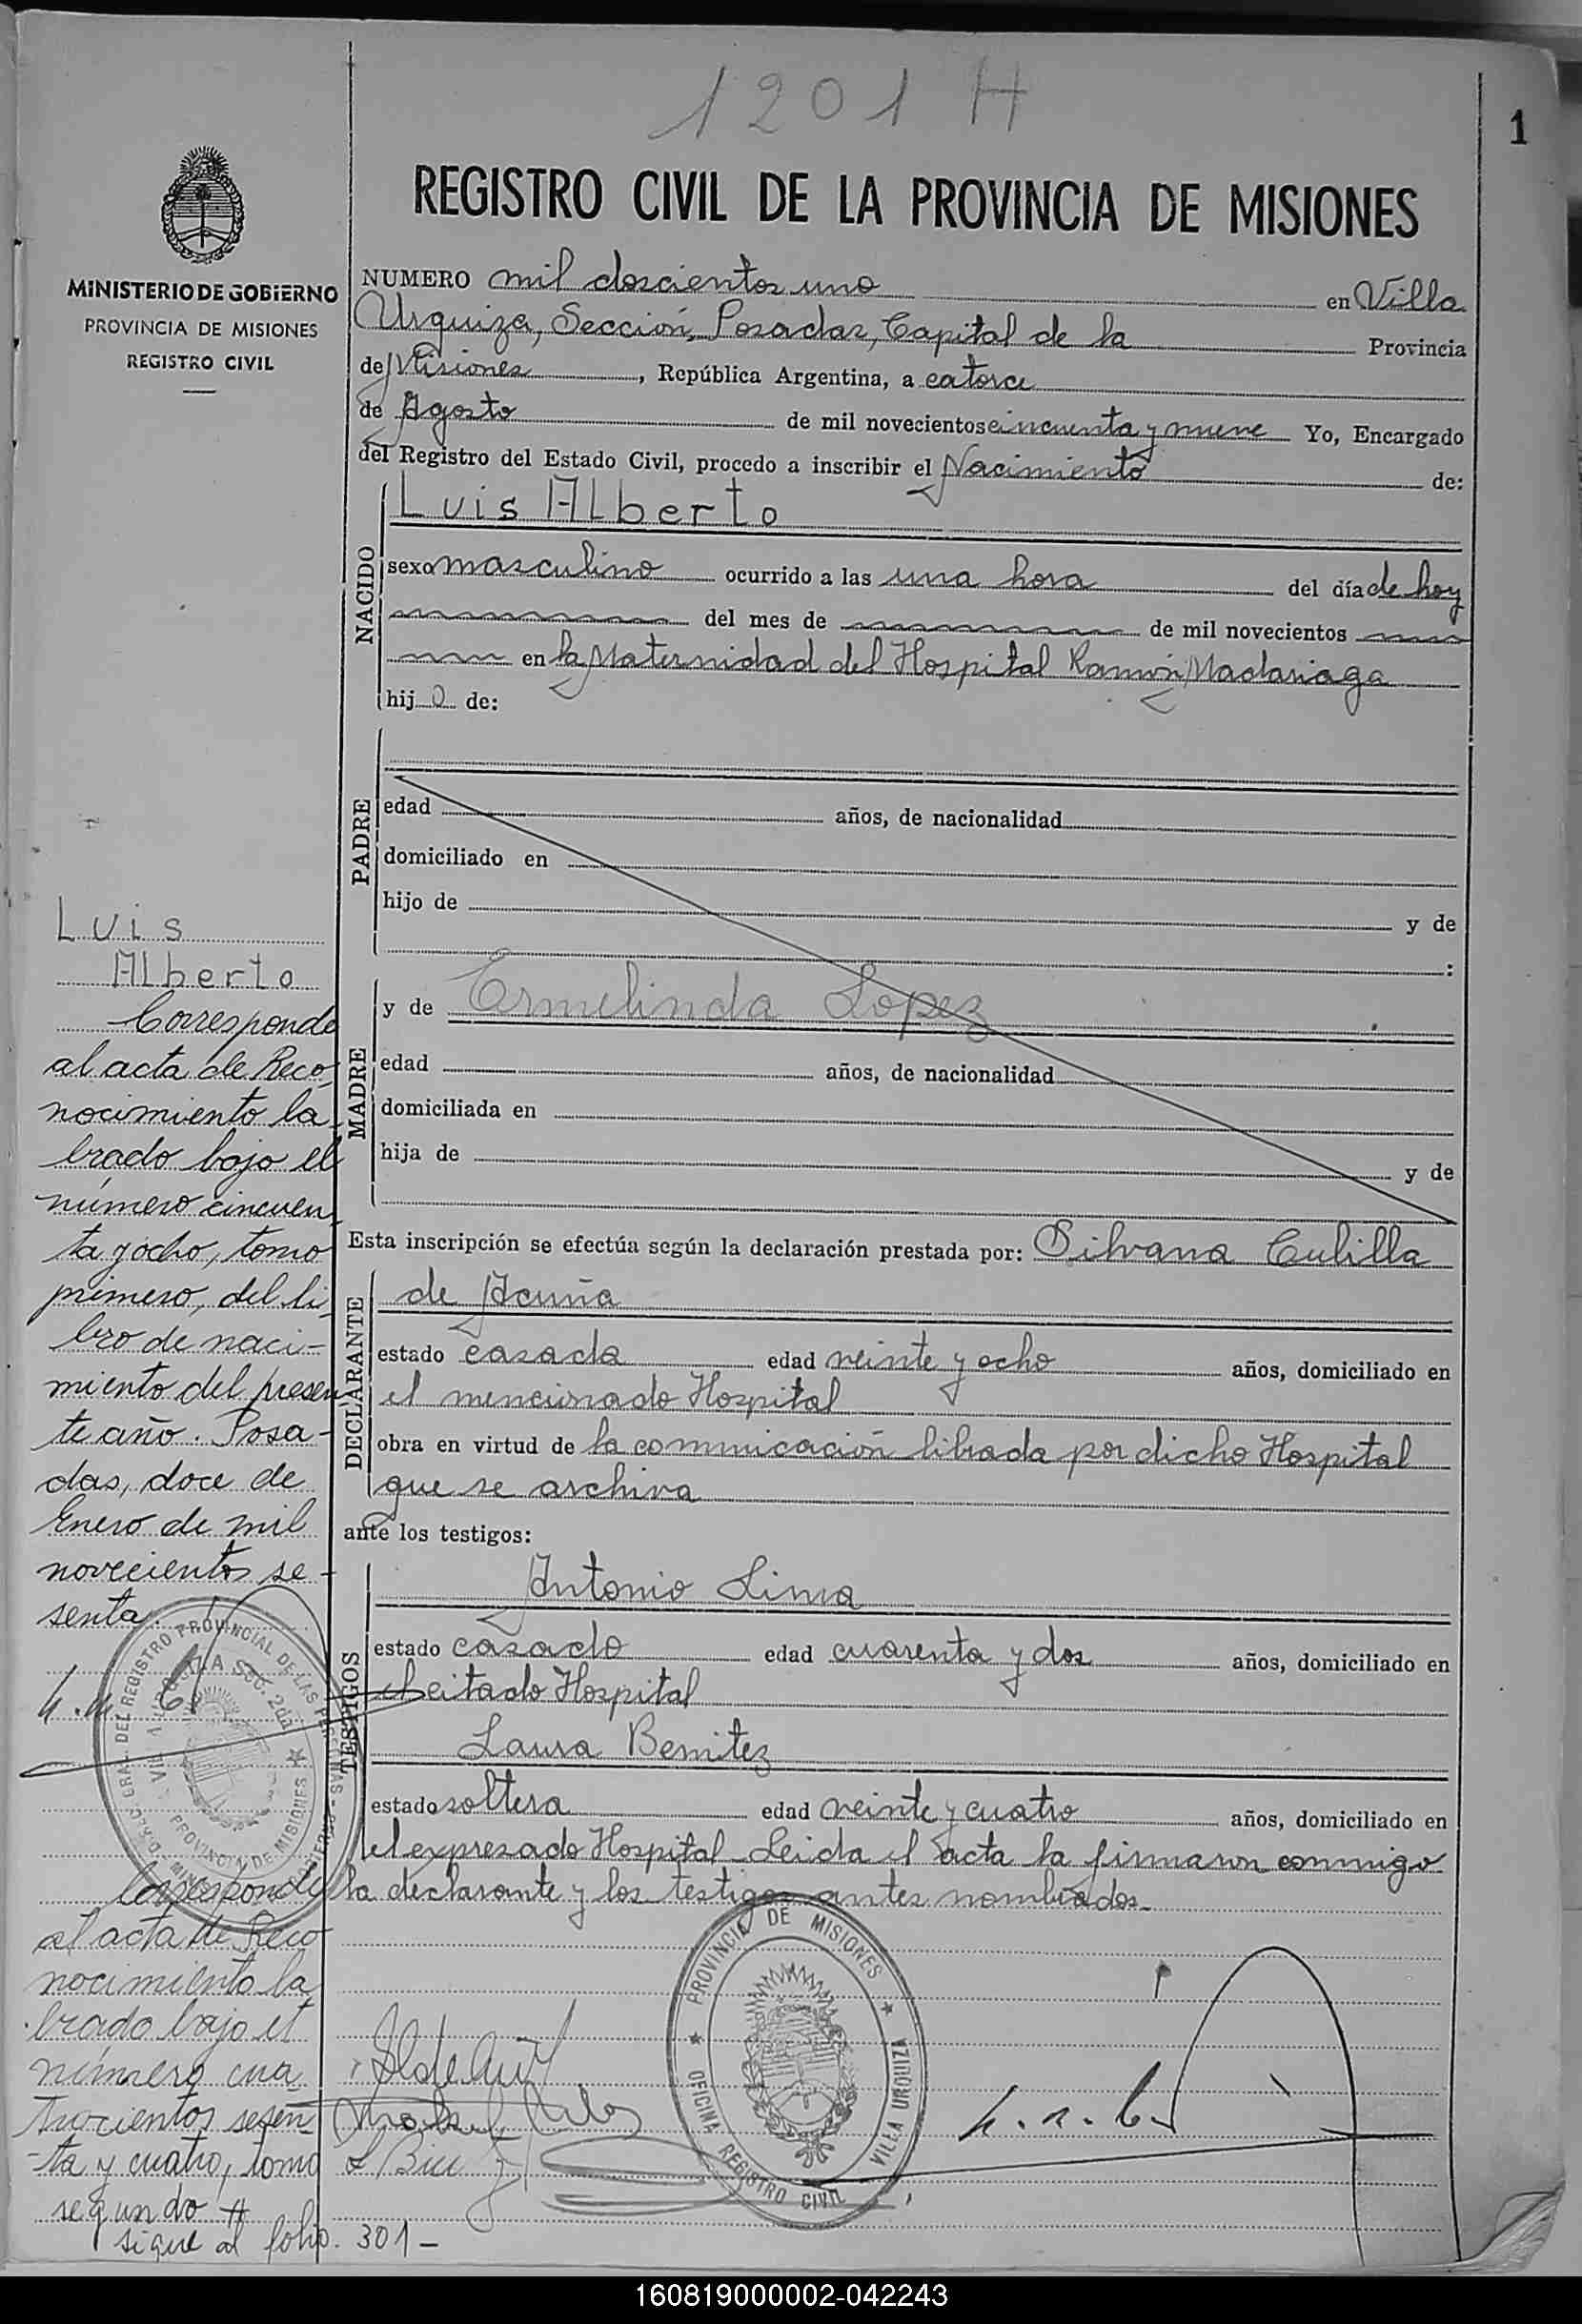 1201 H
1
REGISTRO CIVIL DE LA PROVINCIA DE MISIONES
MINISTERIO DE GOBIERNO
PROVINCIA DE MISIONES
REGISTRO CIVIL
NUMERO mil doscientos uno en Villa
Urquiza, Sección Posadas, Capital de la Provincia
de Misiones, República Argentina, a catorce
de Agosto de mil novecientos cincuenta y nueve Yo, Encargado
del Registro del Estado Civil, procedo a inscribir el Nacimiento de:
NACIDO
Luis Alberto
sexo masculino ocurrido a las una hora del día de hoy
del mes de de mil novecientos
en la Maternidad del Hospital Ramón Madariaga
hijo de:
PADRE
edad años, de nacionalidad
domiciliado en
hijo de y de
:
MADRE
y de Ermelinda Lopez
edad años, de nacionalidad
domiciliada en
hija de y de
Esta inscripción se efectúa según la declaración prestada por: Silvana Cubilla
DECLARANTE
de Acuña
estado casada edad veinte y ocho años, domiciliado en
el mencionado Hospital
obra en virtud de la comunicación librada por dicho Hospital
que se archiva
ante los testigos:
TESTIGOS
Antonio Lima
estado casado edad cuarenta y dos años, domiciliado en
el citado Hospital
Laura Benitez
estado soltera edad veinte y cuatro años, domiciliado en
el expresado Hospital Leida el acta la firmaron conmigo
la declarante y los testigos antes nombrados.
PROVINCIA DE MISIONES
OFICINA REGISTRO CIVIL VILLA URQUIZA
Luis
Alberto
Corresponde
al acta de Reco-
nocimiento la-
brado bajo el
número cincuen-
ta y ocho, tomo
primero, del li-
bro de naci-
miento del presen-
te año. Posa-
das, doce de
Enero de mil
novecientos se-
senta.
DEL REGISTRO PROVINCIAL DE LAS PERSONAS
PROVINCIA DE MISIONES
Corresponde
al acta de Reco
nocimiento la
brado bajo el
número cua-
trocientos sesen
-ta y cuatro, tomo
segundo #
sigue al folio. 301-
160819000002-042243